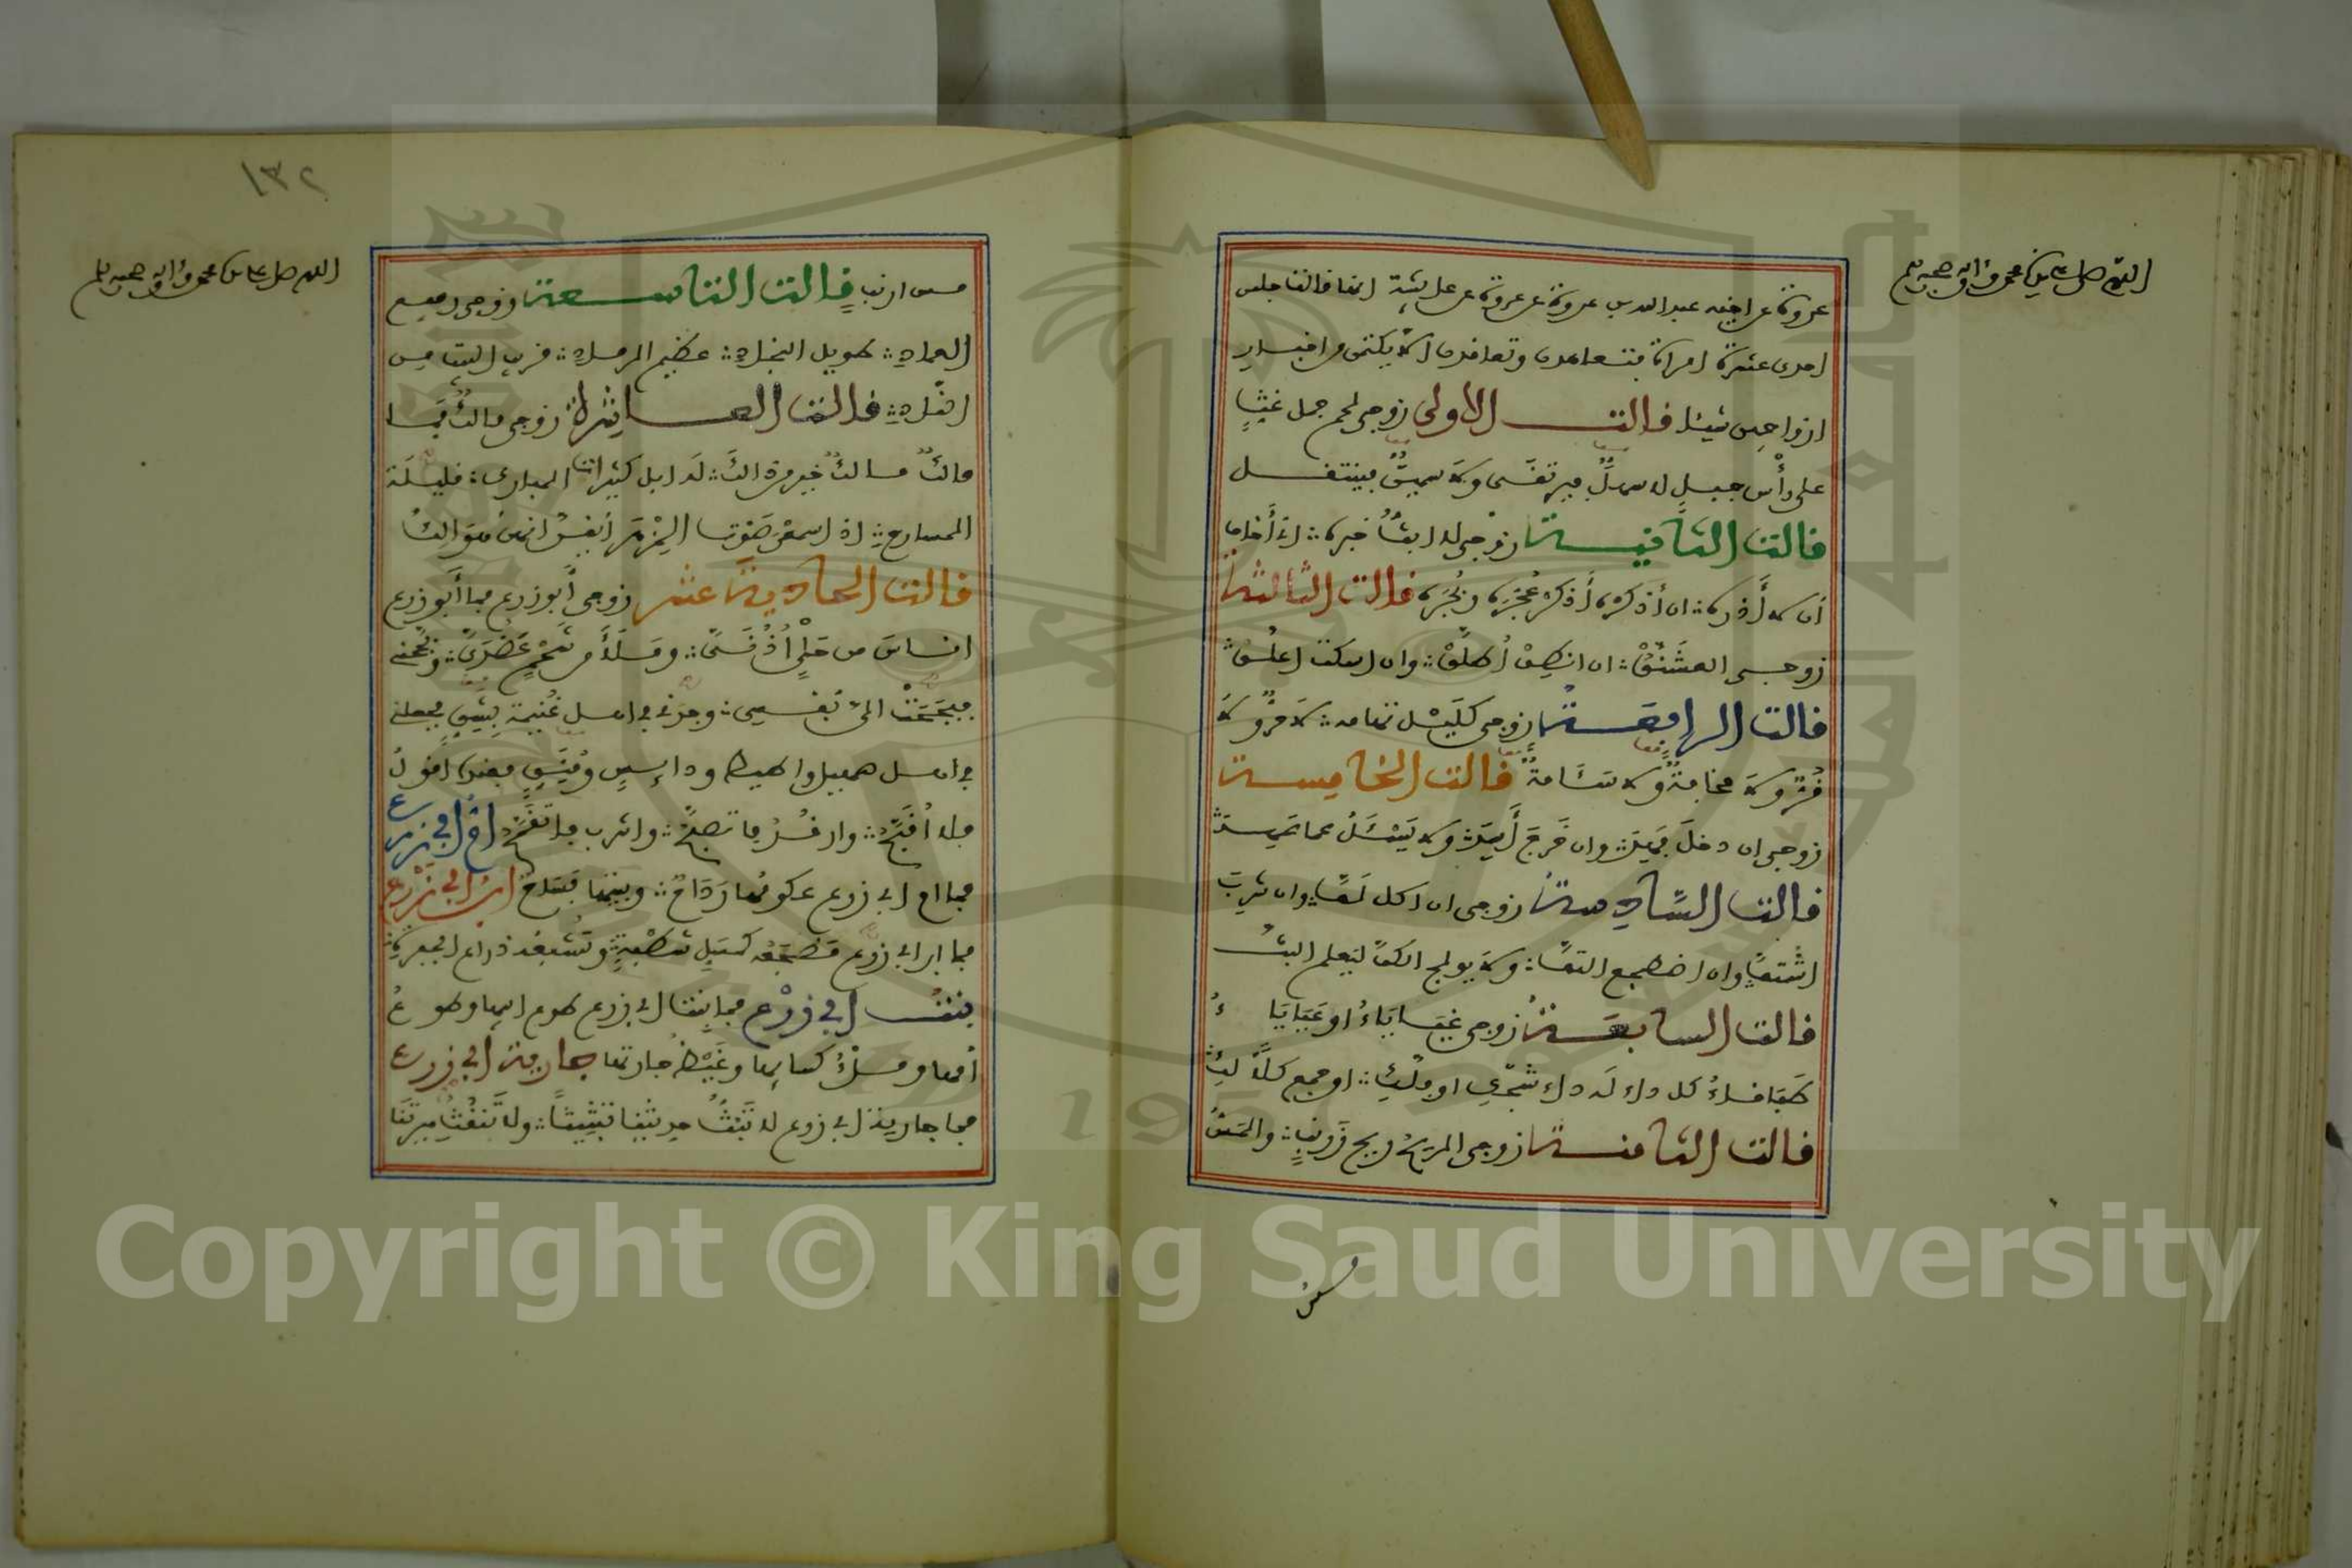 اللهم صل على سيدنا محمد وآله وصحبه وسلم
عروة عن اخيه عبد الله بن عروة عن عروة عن عائشة انها قالت جلس
احدى عشرة امراة فتعاهدن وتعاقدن ان لا يكتمن من اخبار
ازواجهن شيئا قالت الاولى زوجي لحم جمل غثٍّ
على رأس جبل لا سهلٌ فيرتقى ولا سمينٌ فينتقل
قالت الثانية زوجي لا ابثُّ خبره انى أخاف
أن لا أذره ان أذكره أذكر عُجَرَه وبُجَرَه قالت الثالثة
زوجي العشنَّق ان انطق أطلَّق وان اسكت اعلَّق
قالت الرابعة زوجي كليل تهامه لا حرٌّ ولا
قُرٌّ ولا مخافةٌ ولا سَئَامةٌ قالت الخامسة
زوجي ان دخل فهِد وان خرج أسِد ولا يسئل عما عهد
قالت السادسة زوجي ان اكل لفَّ وان شرب
اشتفَّ وان اضطجع التفَّ ولا يولج الكفَّ ليعلم البثَّ
قالت السابعة زوجي غيَايَاءُ او عَيَايَاءُ
طَبَاقاءُ كل داء له داء شجَّكِ او فلَّكِ او جمع كلًّا لكِ
قالت الثامنة زوجي الريح ريح زرنبٍ والمسُّ
مس
١٣٢
اللهم صل على سيدنا محمد وآله وصحبه وسلم
مس ارنبٍ قالت التاسعة زوجي رفيع
العماد طويل النجاد عظيم الرماد قريب البيت من
الناد قالت العاشرة زوجي مالكٌ فما
مالكٌ مالكٌ خير من ذالكَ له ابل كثيرات المبارك قليلة
المسارح اذا اسمعن صوت المِزْهَر أيقنَّ انهن هوالك
قالت الحادية عشر زوجي أبو زرع فما أبو زرع
اناسَ من حَلْيٍ أُذُنَيَّ ومَلَأَ من شحمٍ عَضُدَيَّ وبجَّحني
فبجَحَتْ الىَّ نَفسي وجدني في اهل غُنيمة بِشِقٍّ فجعلني
في اهل صهيل واطيط ودائسٍ ومُنَقٍّ فعنده اقول
فلا أُقبَّحُ وارقُدُ فاتصبَّحُ واشرب فاتقنَّحُ امُّ ابي زرع
فما ام ابي زرع عكومُها رَدَاحٌ وبيتها فَسَاحٌ ابنُ ابي زرع
فما ابن ابي زرع مَضجَعُه كمسَلِّ شطْبةٍ وتُشبعُه ذراع الجفرة
بنتُ ابي زرع فما بنت ابي زرع طوع ابيها وطوعُ
أمها وملْءُ كسائِها وغَيْظُ جارتها جارية أبي زرع
فما جارية ابي زرع لا تَبُثُّ حديثنا تبثيثًا ولا تُنقِّث ميرتَنا